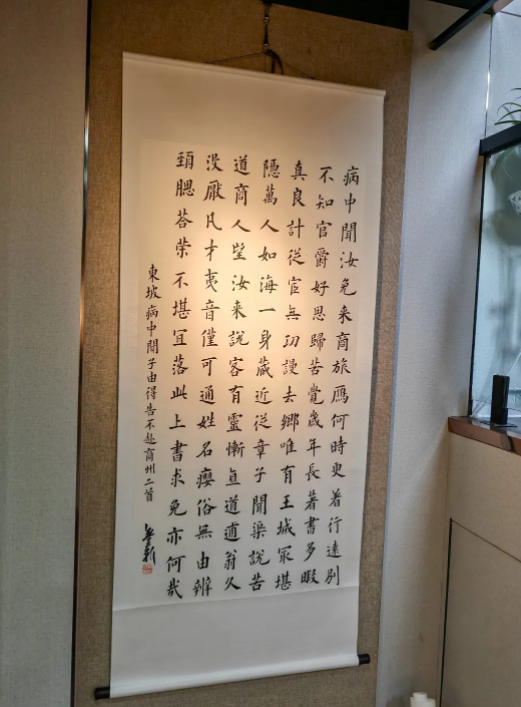 病中聞汝免来商旅鴈何時更著行遠別
不知官爵好思歸苦覺歲年長著書多暇
真良計從宦無功謾去鄉唯有王城冣堪
隱萬人如海一身藏近從章子聞渠說苦
道商人望汝来說客有靈慚直道逋翁久
没厭凡才夷音僅可通姓名癭俗無由辨
頸腮荅策不堪冝落此上書求免亦何哉
東坡病中聞子由得告不赴商州二首